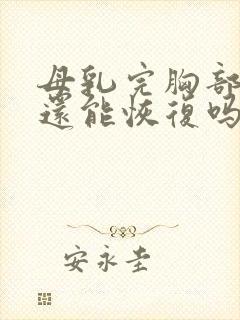 母乳完胸部
還能恢復吗
安永圭